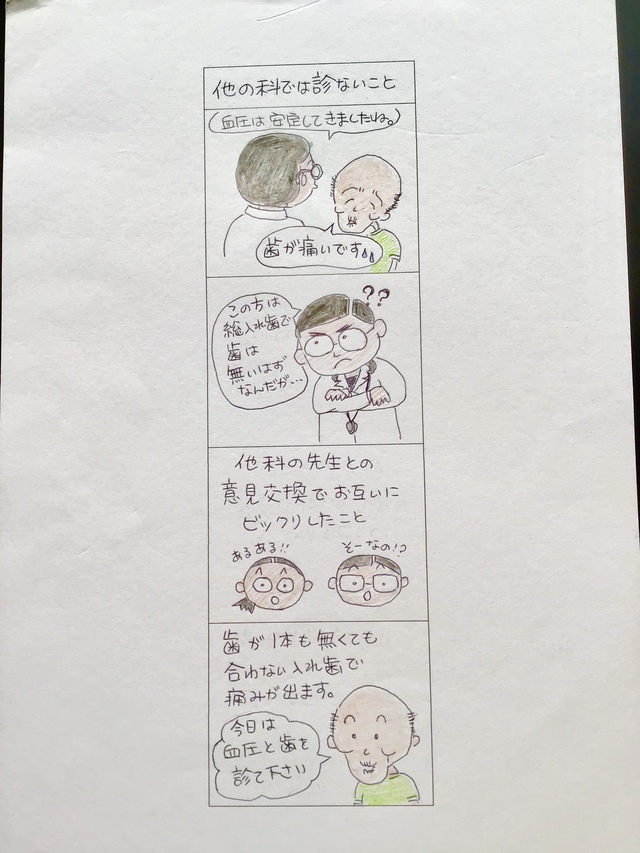 他の科では診ないこと
血圧は安定してきましたね。
歯が痛いです
??
この方は
総入れ歯で
歯は
無いはず
なんだが…
他科の先生との
意見交換でお互いに
ビックリしたこと
あるある!!
そーなの!?
歯が1本も無くても
合わない入れ歯で
痛みが出ます。
今日は
血圧と歯を
診て下さい